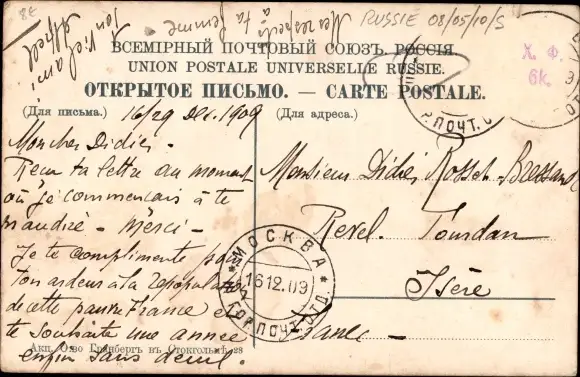 8€
RUSSIE 08/05/10/S
Mes respects à ta femme
Ton vieil ami
Alfred
ВСЕМІРНЫЙ ПОЧТОВЫЙ СОЮЗЪ. РОССІЯ.
UNION POSTALE UNIVERSELLE RUSSIE.
ОТКРЫТОЕ ПИСЬМО. — CARTE POSTALE.
(Для письма.)
(Для адреса.)
Х. Ф.
6k.
16/29 Dec. 1909
Mon cher Didier -
Reçu ta lettre au moment
où je commençais à te
maudire - Merci -
Je te complimente pour
ton ardeur à la repopulation
de cette pauvre France et
te souhaite une année
enfin sans deuil.
Monsieur Didier Rosset-Bressand
Revel. Tourdan
Isère
France -
МОСКВА
16 12.09
ГОР. ПОЧТ.
ПОЧТ.
Акц. О-во Гранбергъ въ Стокгольмѣ. 28